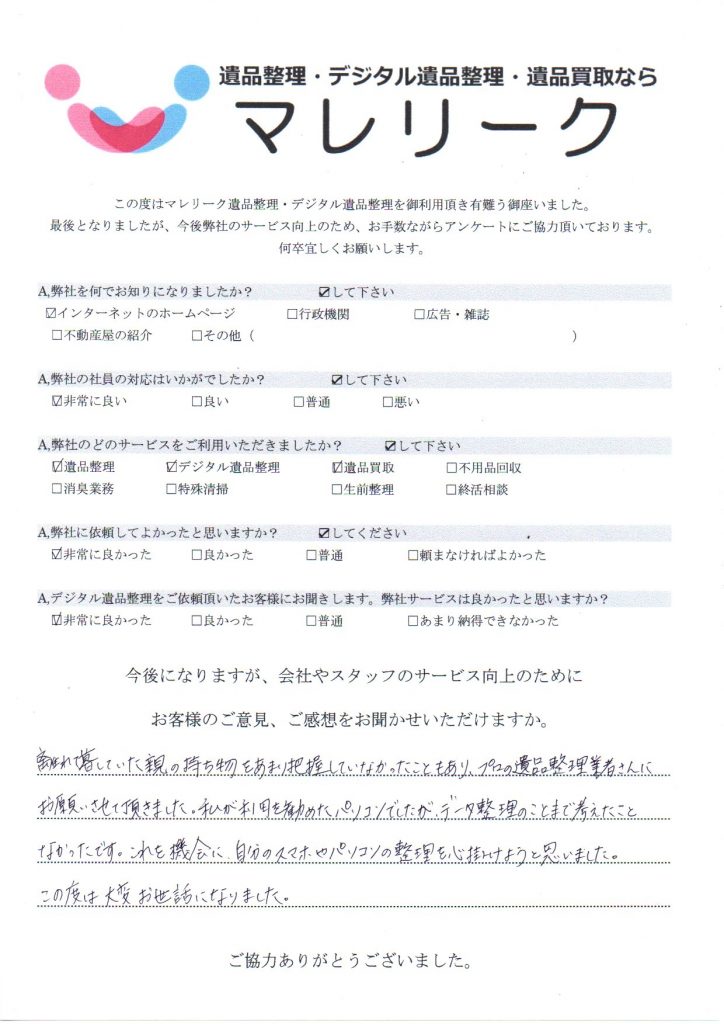 遺品整理・デジタル遺品整理・遺品買取なら
マレリーク
この度はマレリーク遺品整理・デジタル遺品整理を御利用頂き有難う御座いました。
最後となりましたが、今後弊社のサービス向上のため、お手数ながらアンケートにご協力頂いております。
何卒宜しくお願いします。
A,弊社を何でお知りになりましたか? ☑して下さい
☑インターネットのホームページ □行政機関 □広告・雑誌
□不動産屋の紹介 □その他( )
A,弊社の社員の対応はいかがでしたか? ☑して下さい
☑非常に良い □良い □普通 □悪い
A,弊社のどのサービスをご利用いただきましたか? ☑して下さい
☑遺品整理 ☑デジタル遺品整理 ☑遺品買取 □不用品回収
□消臭業務 □特殊清掃 □生前整理 □終活相談
A,弊社に依頼してよかったと思いますか? ☑してください
☑非常に良かった □良かった □普通 □頼まなければよかった
A,デジタル遺品整理をご依頼頂いたお客様にお聞きします。弊社サービスは良かったと思いますか?
☑非常に良かった □良かった □普通 □あまり納得できなかった
今後になりますが、会社やスタッフのサービス向上のために
お客様のご意見、ご感想をお聞かせいただけますか。
離れて暮していた親の持ち物をあまり把握していなかったこともあり、プロの遺品整理業者さんに
お願いさせて頂きました。私が利用を勧めたパソコンでしたが、データ整理のことまで考えたこと
なかったです。これを機会に、自分のスマホやパソコンの整理を心掛けようと思いました。
この度は大変お世話になりました。
ご協力ありがとうございました。